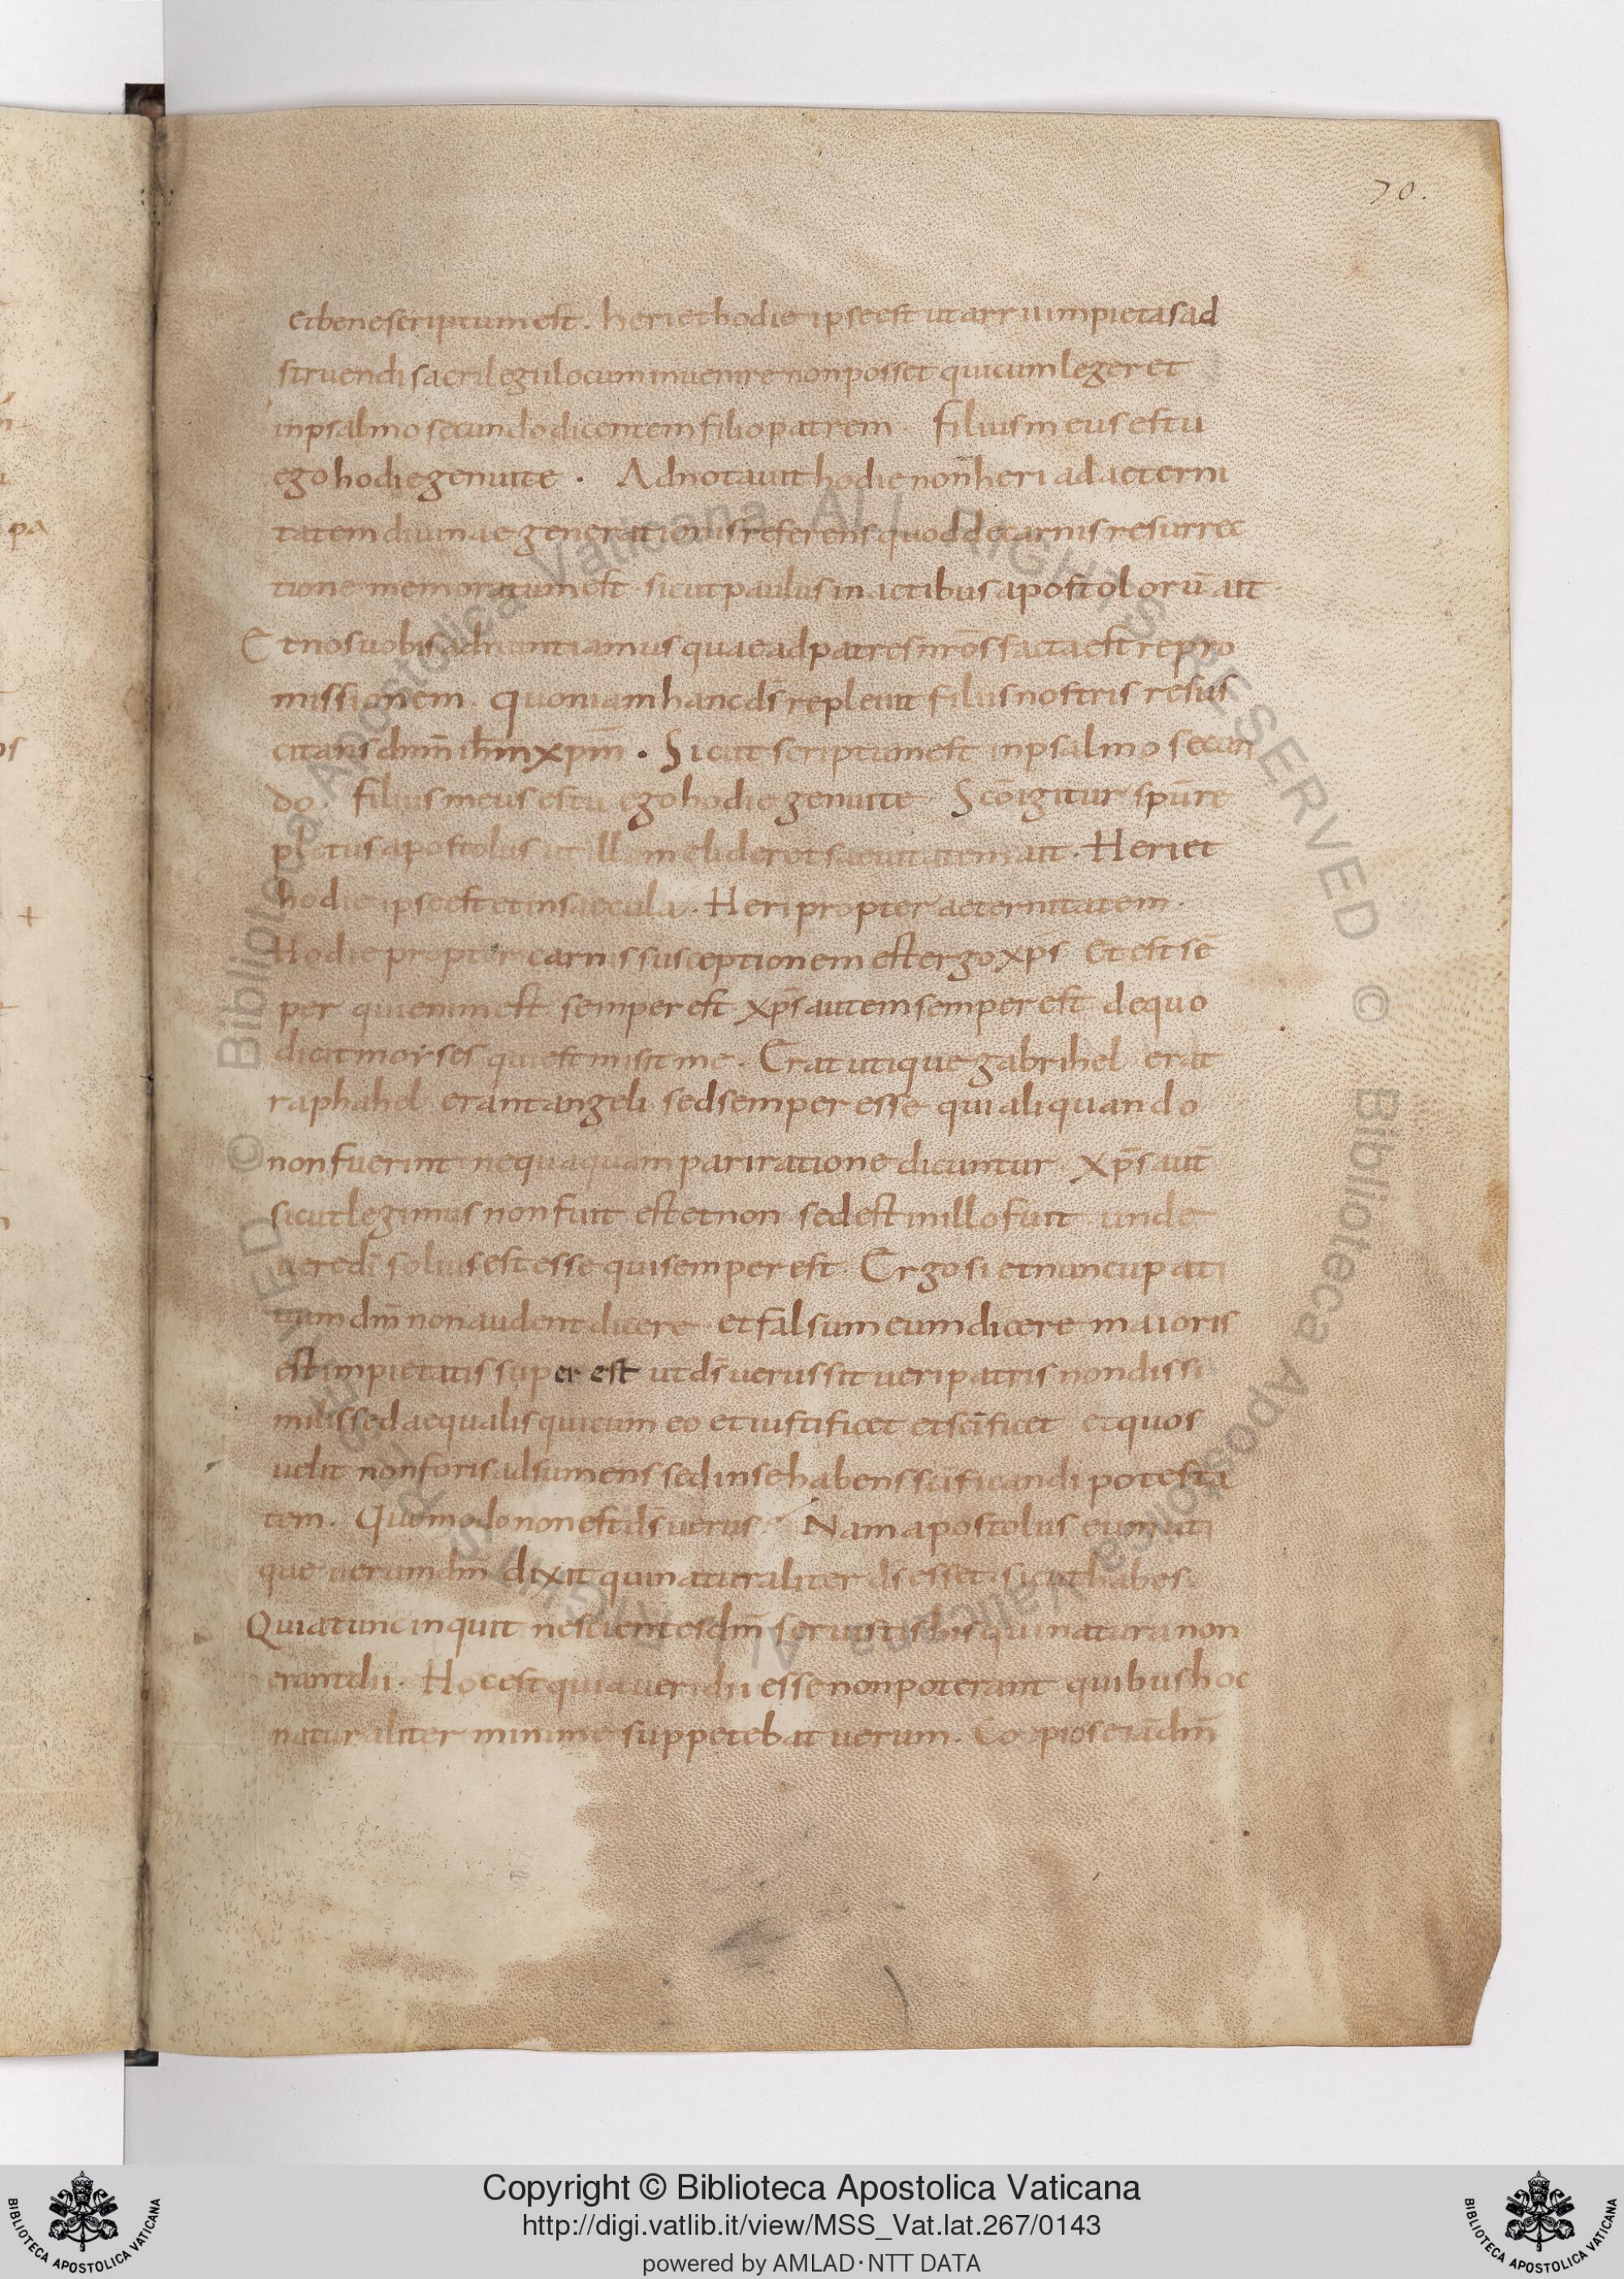 70.
et bene scriptum est. heri et hodie ipse est ut arrii impietas ad
struendi sacrilegii locum invenire non posset qui cum legeret
in psalmo secundo dicentem filio patrem. filius meus es tu
ego hodie genui te. Adnotavit hodie non heri ad aeterni
tatem divinae generationis referens quod de carnis resurrec
tione memoratum est. sicut paulus in actibus apostolorū ait
Et nos vobis adnuntiamus quae ad patres nr̄os facta est repro
missionem. quoniam hanc d̄s replevit filiis nostris resus
citans dn̄m ih̄m xp̄m. Sicut scriptum est in psalmo secun
do. filius meus es tu ego hodie genui te. Sc̄o igitur sp̄u re
pletus apostolus ut illam elideret saevitatem ait. Heri et
hodie ipse est et in saecula. Heri propter aeternitatem.
Hodie propter carnis susceptionem est ergo xp̄s et est sē
per qui enim est semper est xp̄s autem semper est de quo
dicit moyses qui est misit me. Erat utique gabrihel erat
raphahel erant angeli sed semper esse qui aliquando
non fuerint nequaquam pari ratione dicuntur. Xp̄s aut̄
sicut legimus non fuit est et non sed est in illo fuit unde
vere dī solius est esse qui semper est. Ergo si et nuncupati
uum dm̄ non audent dicere et falsum eum dicere maioris
est impietatis superest ut d̄s verus sit veri patris non dissi
milis sed aequalis qui cum eo et iustificet et sc̄ificet et quos
velit non foris adsumens sed in se habens sc̄ificandi potesta
tem. Quomodo non est d̄s verus. Nam apostolus eum uti
que verum dm̄ dixit qui naturaliter d̄s esset sicut habes.
Quia tunc inquit nescientes dm̄ servistis his qui natura non
erant dii. Hoc est quia veri dii esse non poterant quibus hoc
naturaliter minime suppetebat verum.
Copyright © Biblioteca Apostolica Vaticana
http://digi.vatlib.it/view/MSS_Vat.lat.267/0143
powered by AMLAD · NTT DATA
BIBLIOTECA APOSTOLICA VATICANA
BIBLIOTECA APOSTOLICA VATICANA